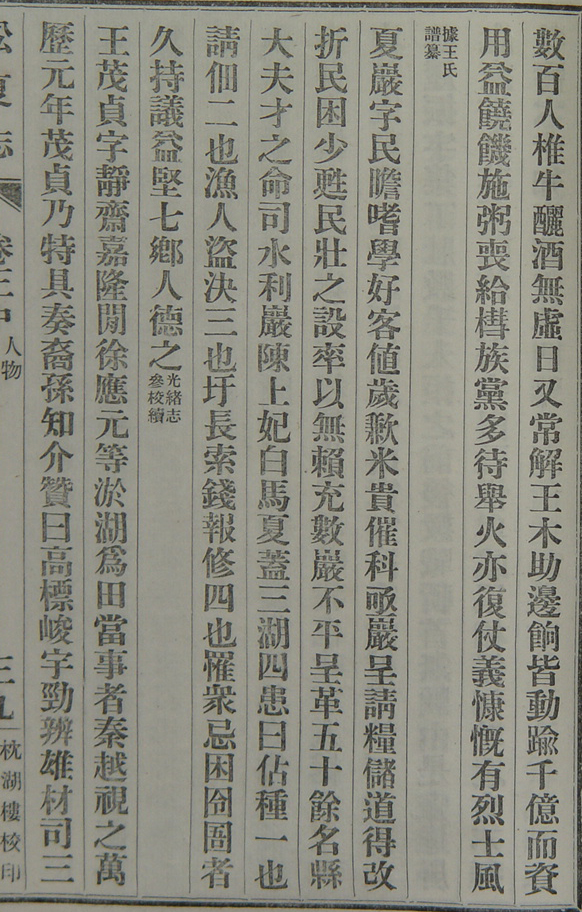 數百人椎牛釃酒無虛日又常解王木助邊餉皆動踰千億而資
用益饒饑施粥喪給槥族黨多待舉火亦復仗義慷慨有烈士風
據王氏
譜纂
夏巖字民瞻嗜學好客値歲歉米貴催科亟巖呈請糧儲道得改
折民困少甦民壯之設率以無賴充數巖不平呈革五十餘名縣
大夫才之命司水利巖陳上妃白馬夏蓋三湖四患曰佔種一也
請佃二也漁人盜決三也圩長索錢報修四也罹衆忌困囹圄者
久持議益堅七鄕人德之
光緒志
參校續
王茂貞字靜齋嘉隆閒徐應元等淤湖爲田當事者秦越視之萬
歷元年茂貞乃特具奏裔孫知介贊曰高標峻宇勁辨雄材司三
松夏志
卷三中
人物
三九
枕湖樓校印